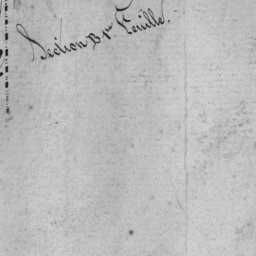 Section B 1re feuille.